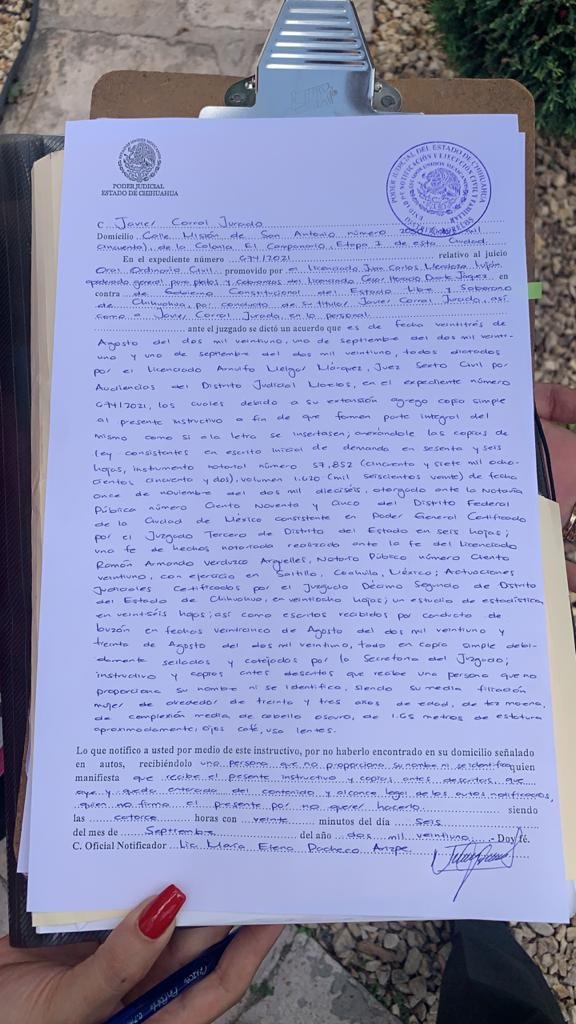 PODER JUDICIAL
ESTADO DE CHIHUAHUA
PODER JUDICIAL DEL ESTADO DE CHIHUAHUA
ESTADOS UNIDOS MEXICANOS
C. Javier Corral Jurado
Domicilio Calle Misión de San Antonio número mil
cincuenta), de la Colonia El Campanario, Etapa I de esta Ciudad.
En el expediente número 674/2021 relativo al juicio
Oral Ordinario Civil promovido por el Licenciado Juan Carlos Mendoza Luján
apoderado general para pleitos y cobranzas del Licenciado César Horacio Duarte Jáquez en
contra de Gobierno Constitucional del Estado Libre y Soberano
de Chihuahua por conducto de su titular Javier Corral Jurado, así
como a Javier Corral Jurado, en lo personal
ante el juzgado se dictó un acuerdo que es de fecha veintitrés de
Agosto del dos mil veintiuno, uno de septiembre del dos mil veinti-
uno y uno de septiembre del dos mil veintiuno, todos dictados
por el Licenciado Arnulfo Melgar Márquez, Juez Sexto Civil por
Audiencias del Distrito Judicial Morelos, en el expediente número
674/2021, los cuales debido a su extensión agrego copia simple
al presente instructivo a fin de que formen parte integral del
mismo como si a la letra se insertasen; anexándole las copias de
ley consistentes en escrito inicial de demanda en sesenta y seis
hojas, instrumento notarial número 57,852 (cincuenta y siete mil ocho-
cientos cincuenta y dos), volumen 1,620 (mil seiscientos veinte) de fecha
once de noviembre del dos mil dieciséis, otorgado ante la Notaría
Pública número Ciento Noventa y Cinco del Distrito Federal
de la Ciudad de México consistente en Poder General Certificado
por el Juzgado Tercero de Distrito del Estado en seis hojas;
una fe de hechos notariada realizada ante la fe del Licenciado
Ramón Armando Verduzco Argüelles, Notario Público número Ciento
veintiuno, con ejercicio en Saltillo, Coahuila, México; Actuaciones
Judiciales Certificadas por el Juzgado Décimo Segundo de Distrito
del Estado de Chihuahua, en veintiocho hojas; un estudio de estadística
en veintiséis hojas; así como escritos recibidos por conducto de
buzón en fechas veinticinco de Agosto del dos mil veintiuno y
treinta de Agosto del dos mil veintiuno, todo en copia simple debi-
damente sellados y cotejados por la Secretaria del Juzgado;
instructivo y copias antes descritas que recibe una persona que no
proporciona su nombre ni se identifica, siendo su media filiación
mujer de alrededor de treinta y tres años de edad, de tez morena,
de complexión media, de cabello oscuro, de 1.65 metros de estatura
aproximadamente, ojos café, usa lentes.
Lo que notifico a usted por medio de este instructivo, por no haberlo encontrado en su domicilio señalado
en autos, recibiéndolo una persona que no proporciona su nombre ni se identifica quien
manifiesta que recibe el presente instructivo y copias antes descritas que
oye y queda enterada del contenido y alcance legal de los autos notificados,
quien no firma el presente por no querer hacerlo. siendo
las catorce horas con veinte minutos del día Seis
del mes de Septiembre del año dos mil veintiuno.- Doy fé.
C. Oficial Notificador Lic. María Elena Pacheco Arizpe